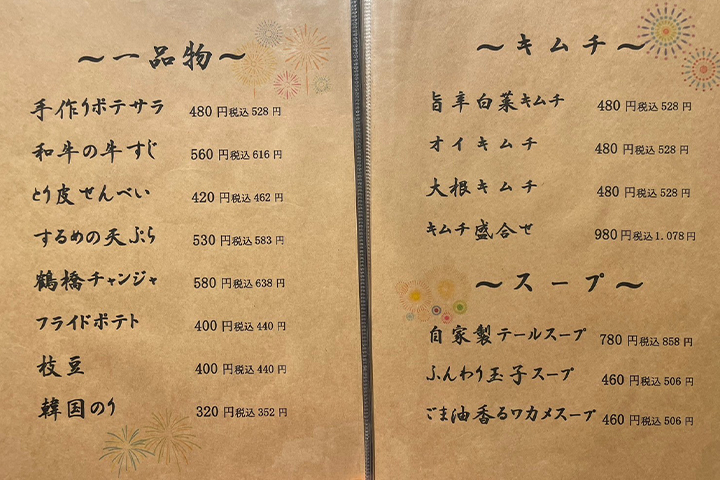 ～一品物～
手作りポテサラ 480円税込528円
和牛の牛すじ 560円税込616円
とり皮せんべい 420円税込462円
するめの天ぷら 530円税込583円
鶴橋チャンジャ 580円税込638円
フライドポテト 400円税込440円
枝豆 400円税込440円
韓国のり 320円税込352円
～キムチ～
旨辛白菜キムチ 480円税込528円
オイキムチ 480円税込528円
大根キムチ 480円税込528円
キムチ盛合せ 980円税込1.078円
～スープ～
自家製テールスープ 780円税込858円
ふんわり玉子スープ 460円税込506円
ごま油香るワカメスープ 460円税込506円